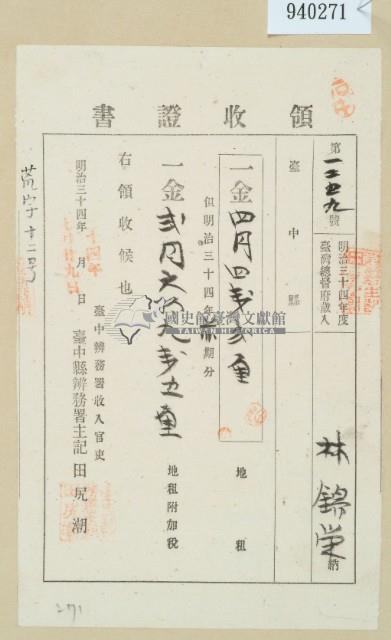 940271
領收證書
第一二五九號
明治三十四年度
臺灣總督府歲入
林錦榮納
臺中
一金四円四
地租
但明治三十四年 期分
一金弐円
地租附加稅
右領收候也
明治三十四年 月 日
臺中辨務署收入官吏
臺中縣辨務署主記田尻潮
荒字十二号
國史館臺灣文獻館
TAIWAN HISTORICA
271